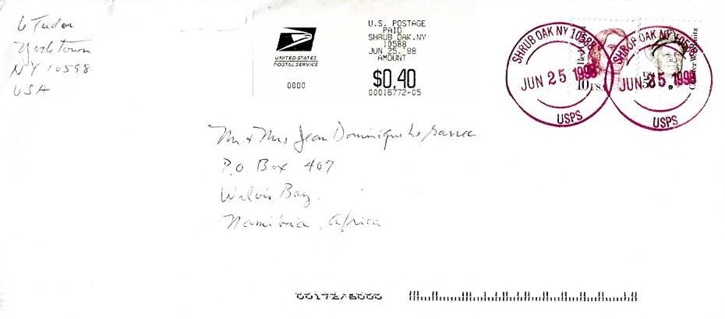 6 Tudor
Yorktown
NY 10598
USA
UNITED STATES
POSTAL SERVICE
0000
U.S. POSTAGE
PAID
SHRUB OAK.NY
10588
JUN 25.'98
AMOUNT
$0.40
00018772-05
SHRUB OAK NY 10588
JUN 25 1998
USPS
SHRUB OAK NY 10588
JUN 25 1998
USPS
Red
10
Mr + Mrs Jean Dominique Le Garrec
P.O. Box 407
Walvis Bay
Namibia, Africa